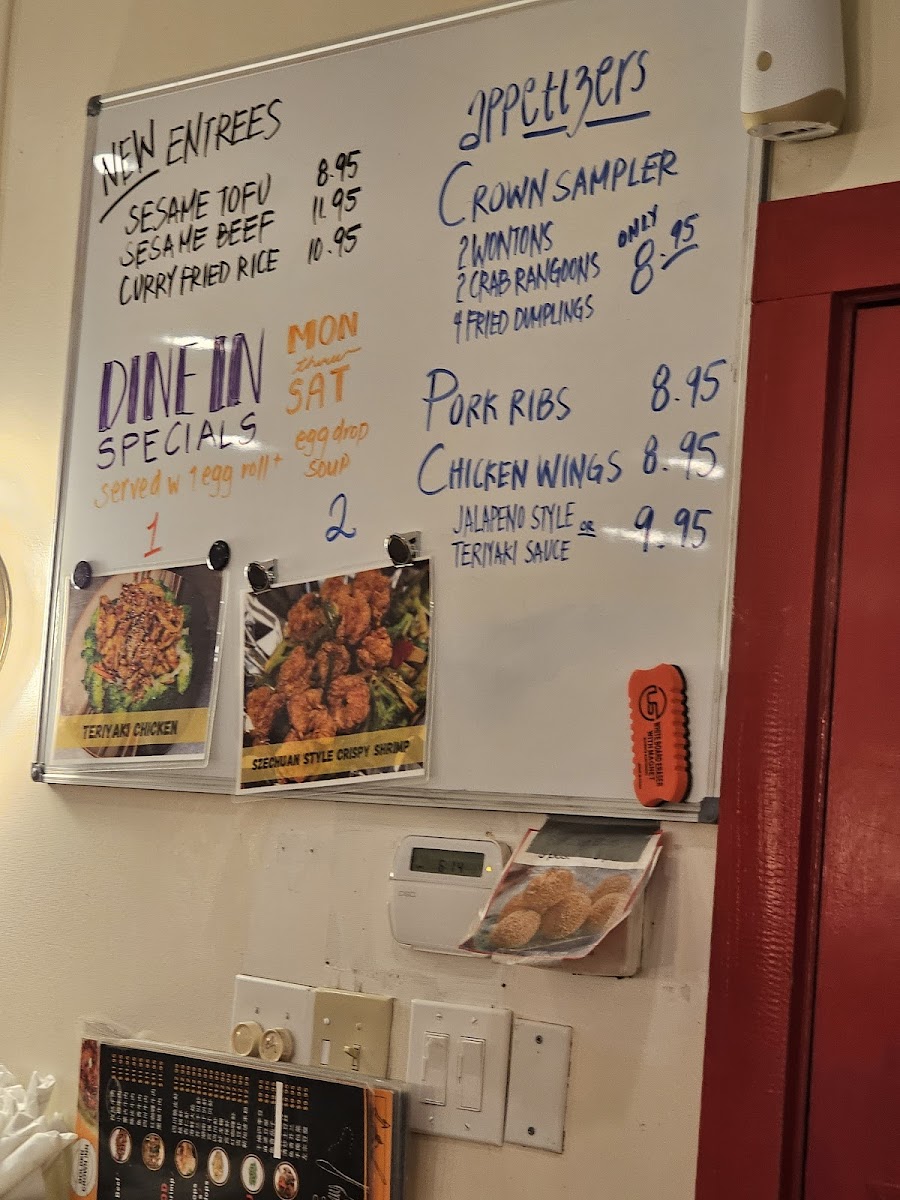 NEW ENTREES
SESAME TOFU 8.95
SESAME BEEF 11.95
CURRY FRIED RICE 10.95
DINE IN
SPECIALS
MON
thru
SAT
served w 1 egg roll +
egg drop
soup
1
2
TERIYAKI CHICKEN
SZECHUAN STYLE CRISPY SHRIMP
appetizers
CROWN SAMPLER
2 WONTONS
2 CRAB RANGOONS
4 FRIED DUMPLINGS
ONLY
8.95
PORK RIBS 8.95
CHICKEN WINGS 8.95
JALAPENO STYLE OR
TERIYAKI SAUCE
9.95
WHITE BOARD ERASER
WITH MAGNET
6:14
DSC
GOLDEN
CROWN INN
Beef